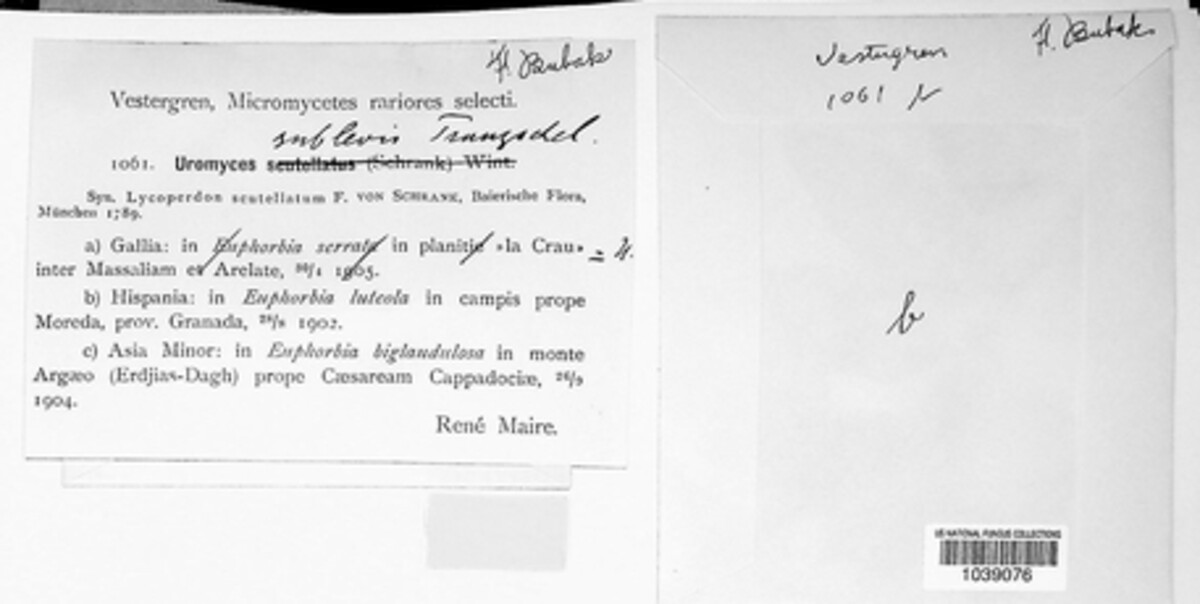 Fr. Bubak
Vestergren, Micromycetes rariores selecti.
sublevis Tranzschel.
1061. Uromyces scutellatus (Schrank) Wint.
Syn. Lycoperdon scutellatum F. VON SCHRANK, Baierische Flora,
München 1789.
a) Gallia: in Euphorbia serrata in planitie »la Crau»
inter Massaliam et Arelate, 1905.
b) Hispania: in Euphorbia luteola in campis prope
Moreda, prov. Granada, 1902.
c) Asia Minor: in Euphorbia biglandulosa in monte
Argæo (Erdjias-Dagh) prope Cæsaream Cappadociæ,
1904.
René Maire.
Vestergren
1061 b
Fr. Bubak
b
US NATIONAL FUNGUS COLLECTIONS
1039076